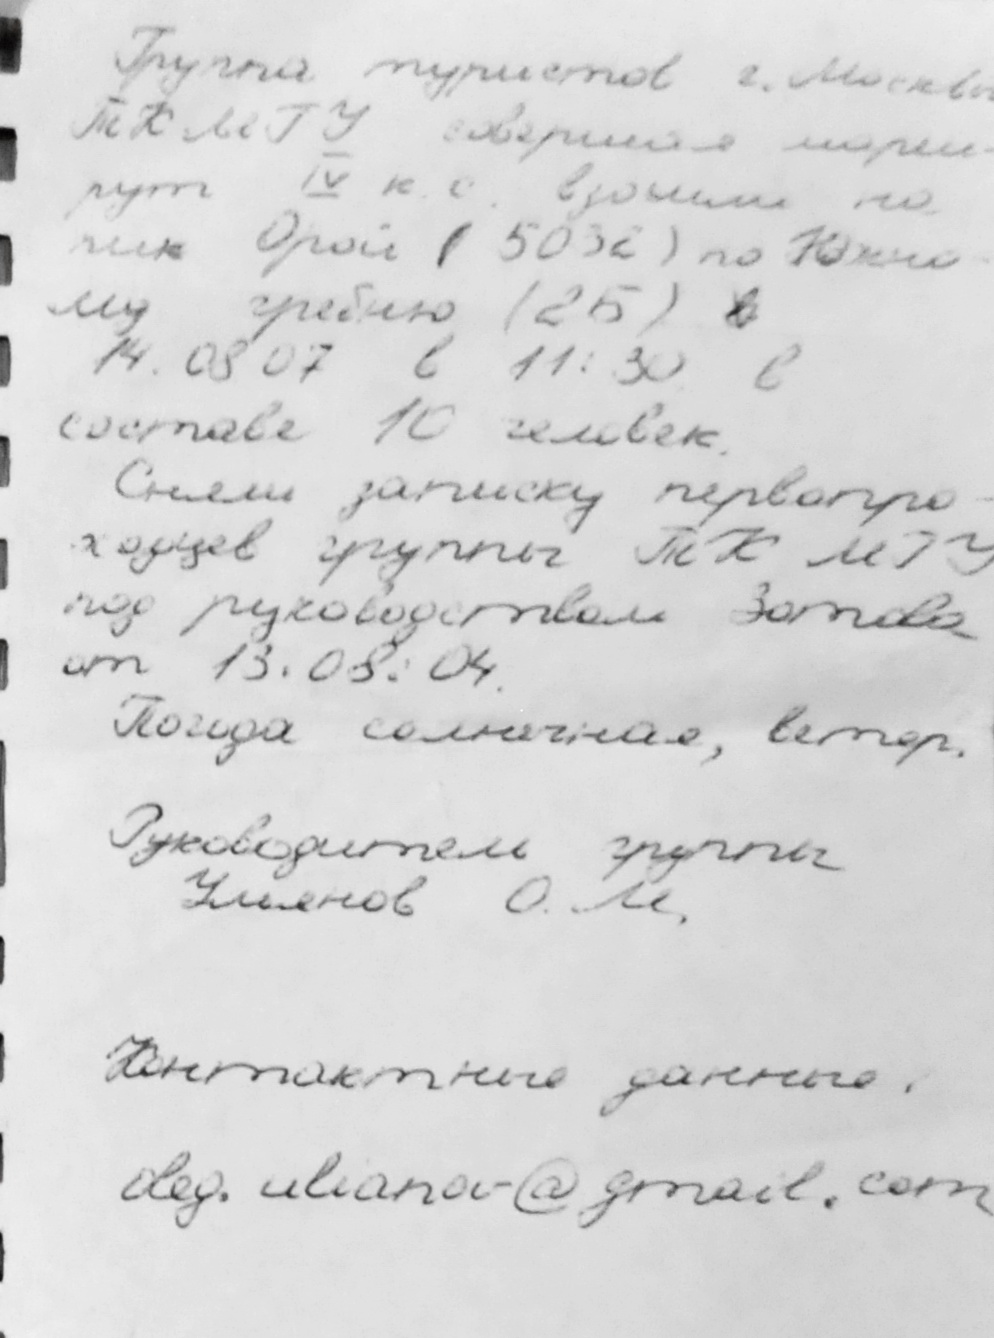 Группа туристов г. Москвы
ТК МГУ совершая марш-
рут IV к.с. взошли на
пик Орой (5032) по Южно-
му гребню (2Б)
14.08 07 в 11:30 в
составе 10 человек.
Сняли записку первопро-
ходцев группы ТК МГУ
под руководством Зотова
от 13.08.04.
Погода солнечная, ветер.
Руководитель группы
Ульянов О. М.
Контактные данные.
oleg.ulianov@gmail.com